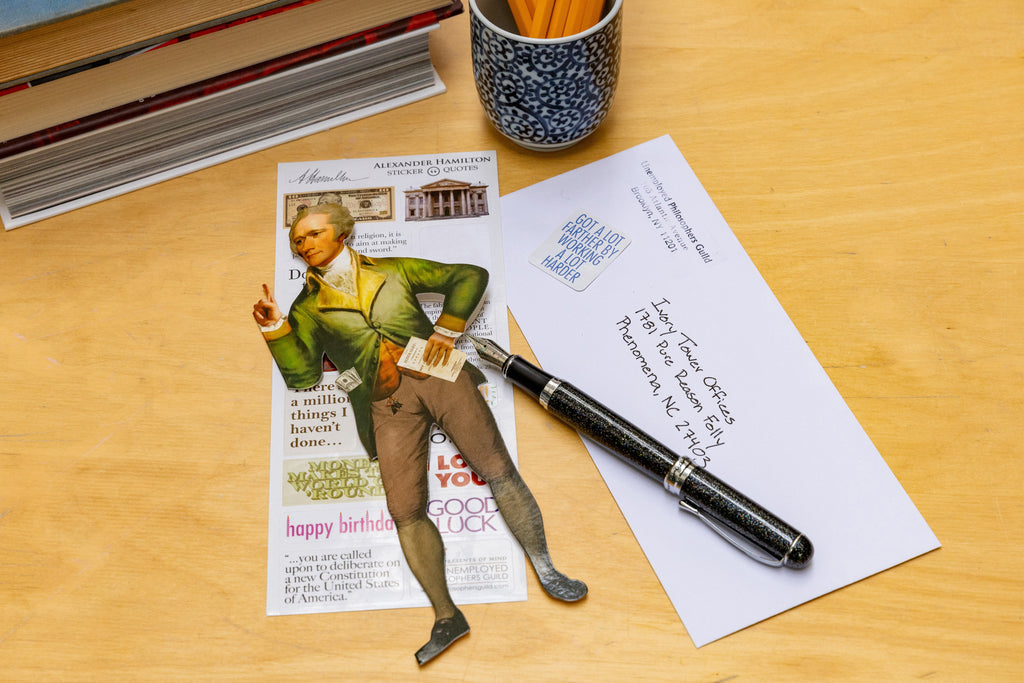 ALEXANDER HAMILTON
STICKER QUOTES
A Hamilton
n religion, it is
o aim at making
and sword."
Do
The fab
There's
a million
things I
haven't
done...
MONEY
MAKES THE
WORLD GO
'ROUND
LO
YOU
happy birthda
GOOD
LUCK
"...you are called
upon to deliberate on
a new Constitution
for the United States
of America."
NEMPLOYED
OPHERS GUILD
GOT A LOT
FARTHER BY
WORKING
A LOT
HARDER
Unemployed Philosophers Guild
Atlantic Avenue
Brooklyn, NY 11201
Ivory Tower Offices
1781 Pure Reason Folly
Phenomena, NC 27403